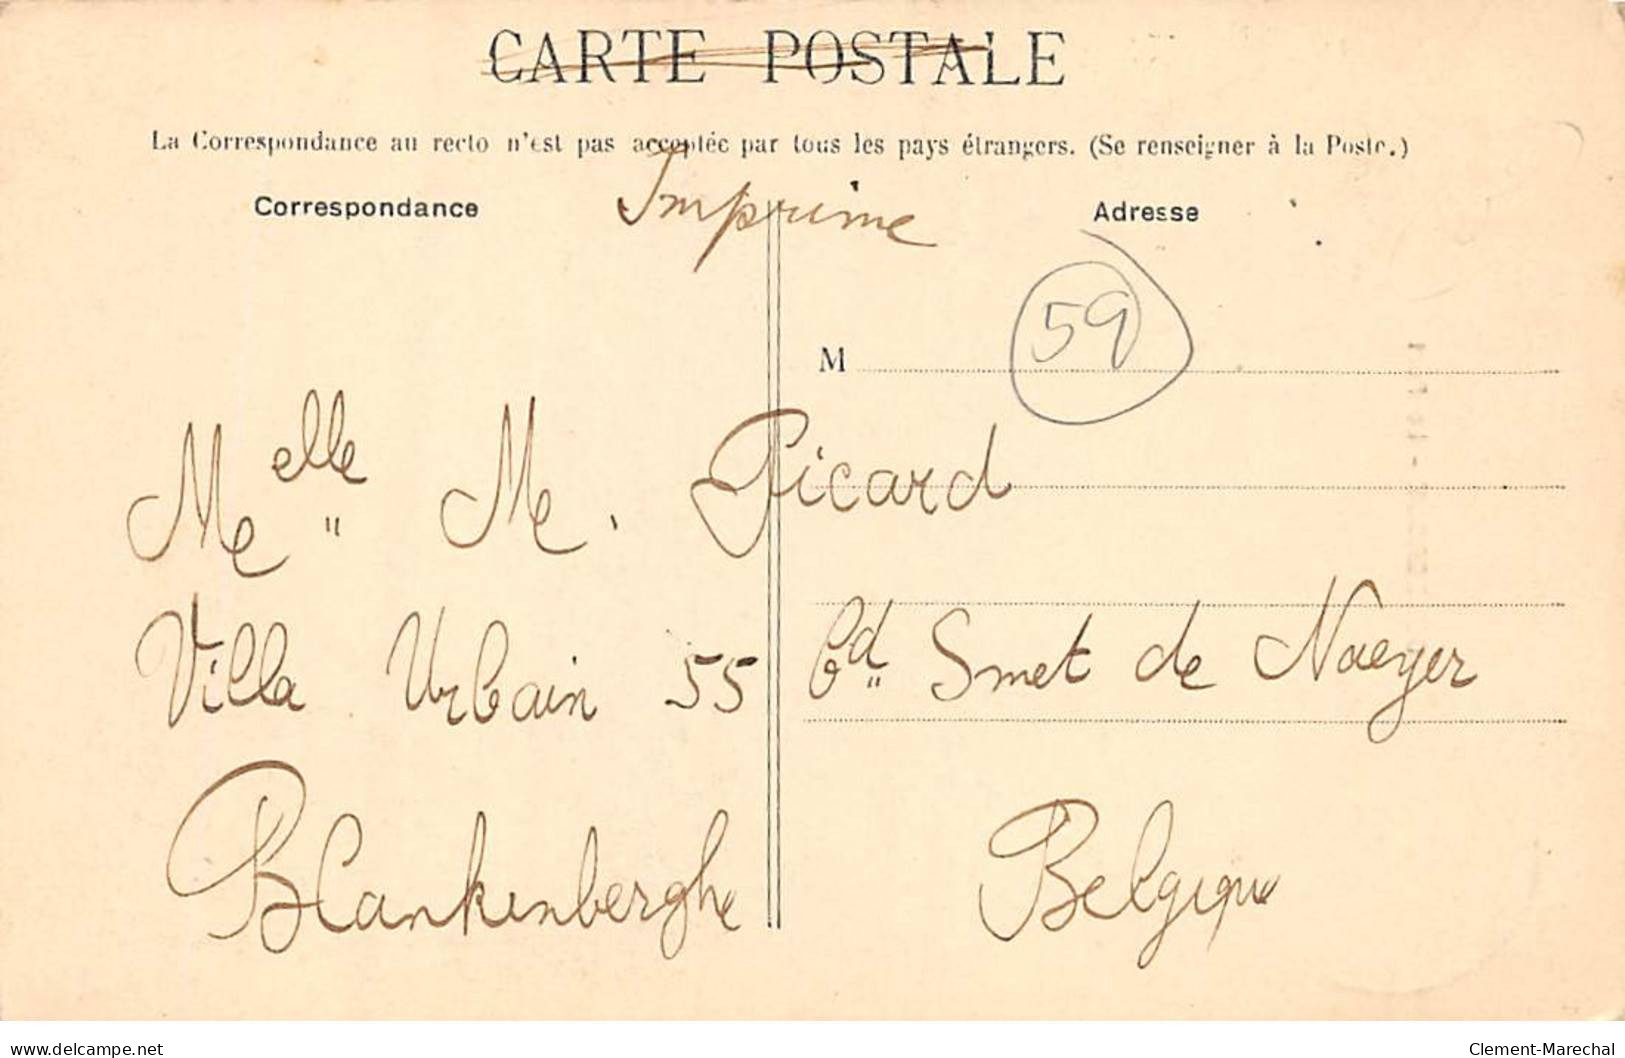 CARTE POSTALE
La Correspondance au recto n'est pas acceptée par tous les pays étrangers. (Se renseigner à la Poste.)
Correspondance
Imprime
Adresse
59
M
Melle M. Picard
Villa Urbain 55 bd Smet de Naeyer
Blankenberghe
Belgique
delcampe.net
Clement-Marechal